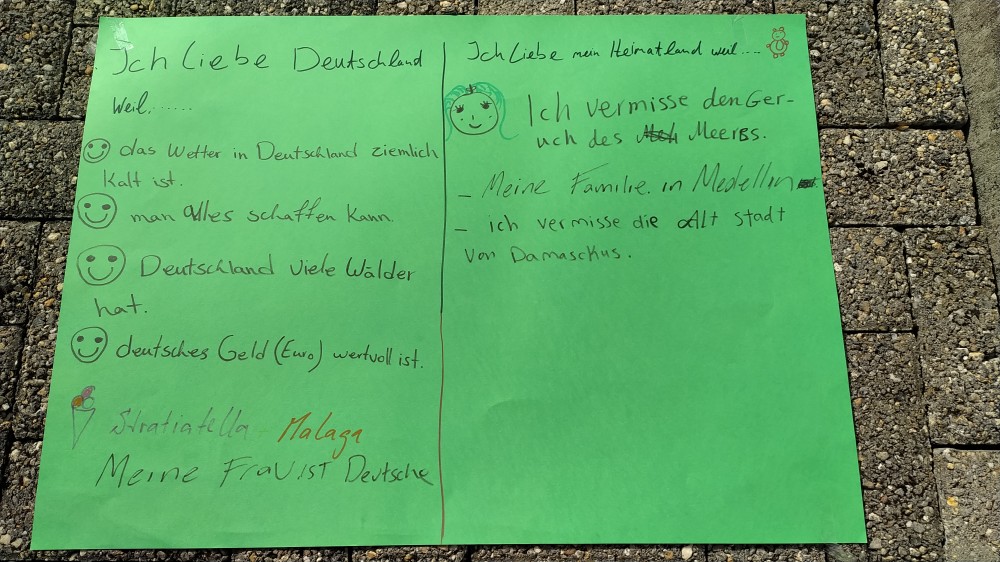 Ich Liebe Deutschland
weil.......
das Wetter in Deutschland ziemlich
kalt ist.
man alles schaffen kann.
Deutschland viele Wälder
hat.
deutsches Geld (Euro) wertvoll ist.
Stratiatella Malaga
Meine Frau ist Deutsche
Ich Liebe mein Heimatland weil....
Ich vermisse den Ger-
uch des Meeres.
- Meine Familie. in Medellin
- ich vermisse die Alt stadt
von Damaskus.